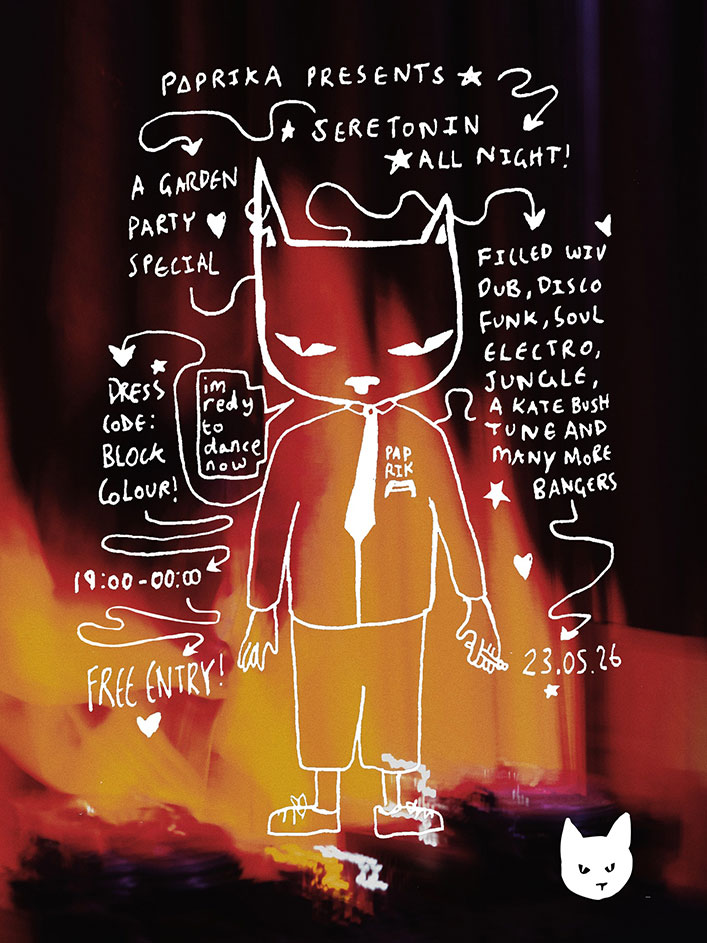 PAPRIKA PRESENTS
SERETONIN
ALL NIGHT!
A GARDEN
PARTY
SPECIAL
FILLED WIV
DUB, DISCO
FUNK, SOUL
ELECTRO,
JUNGLE,
A KATE BUSH
TUNE AND
MANY MORE
BANGERS
DRESS
CODE:
BLOCK
COLOUR!
im
redy
to
dance
now
PAP
RIK
19:00-00:00
FREE ENTRY!
23.05.26